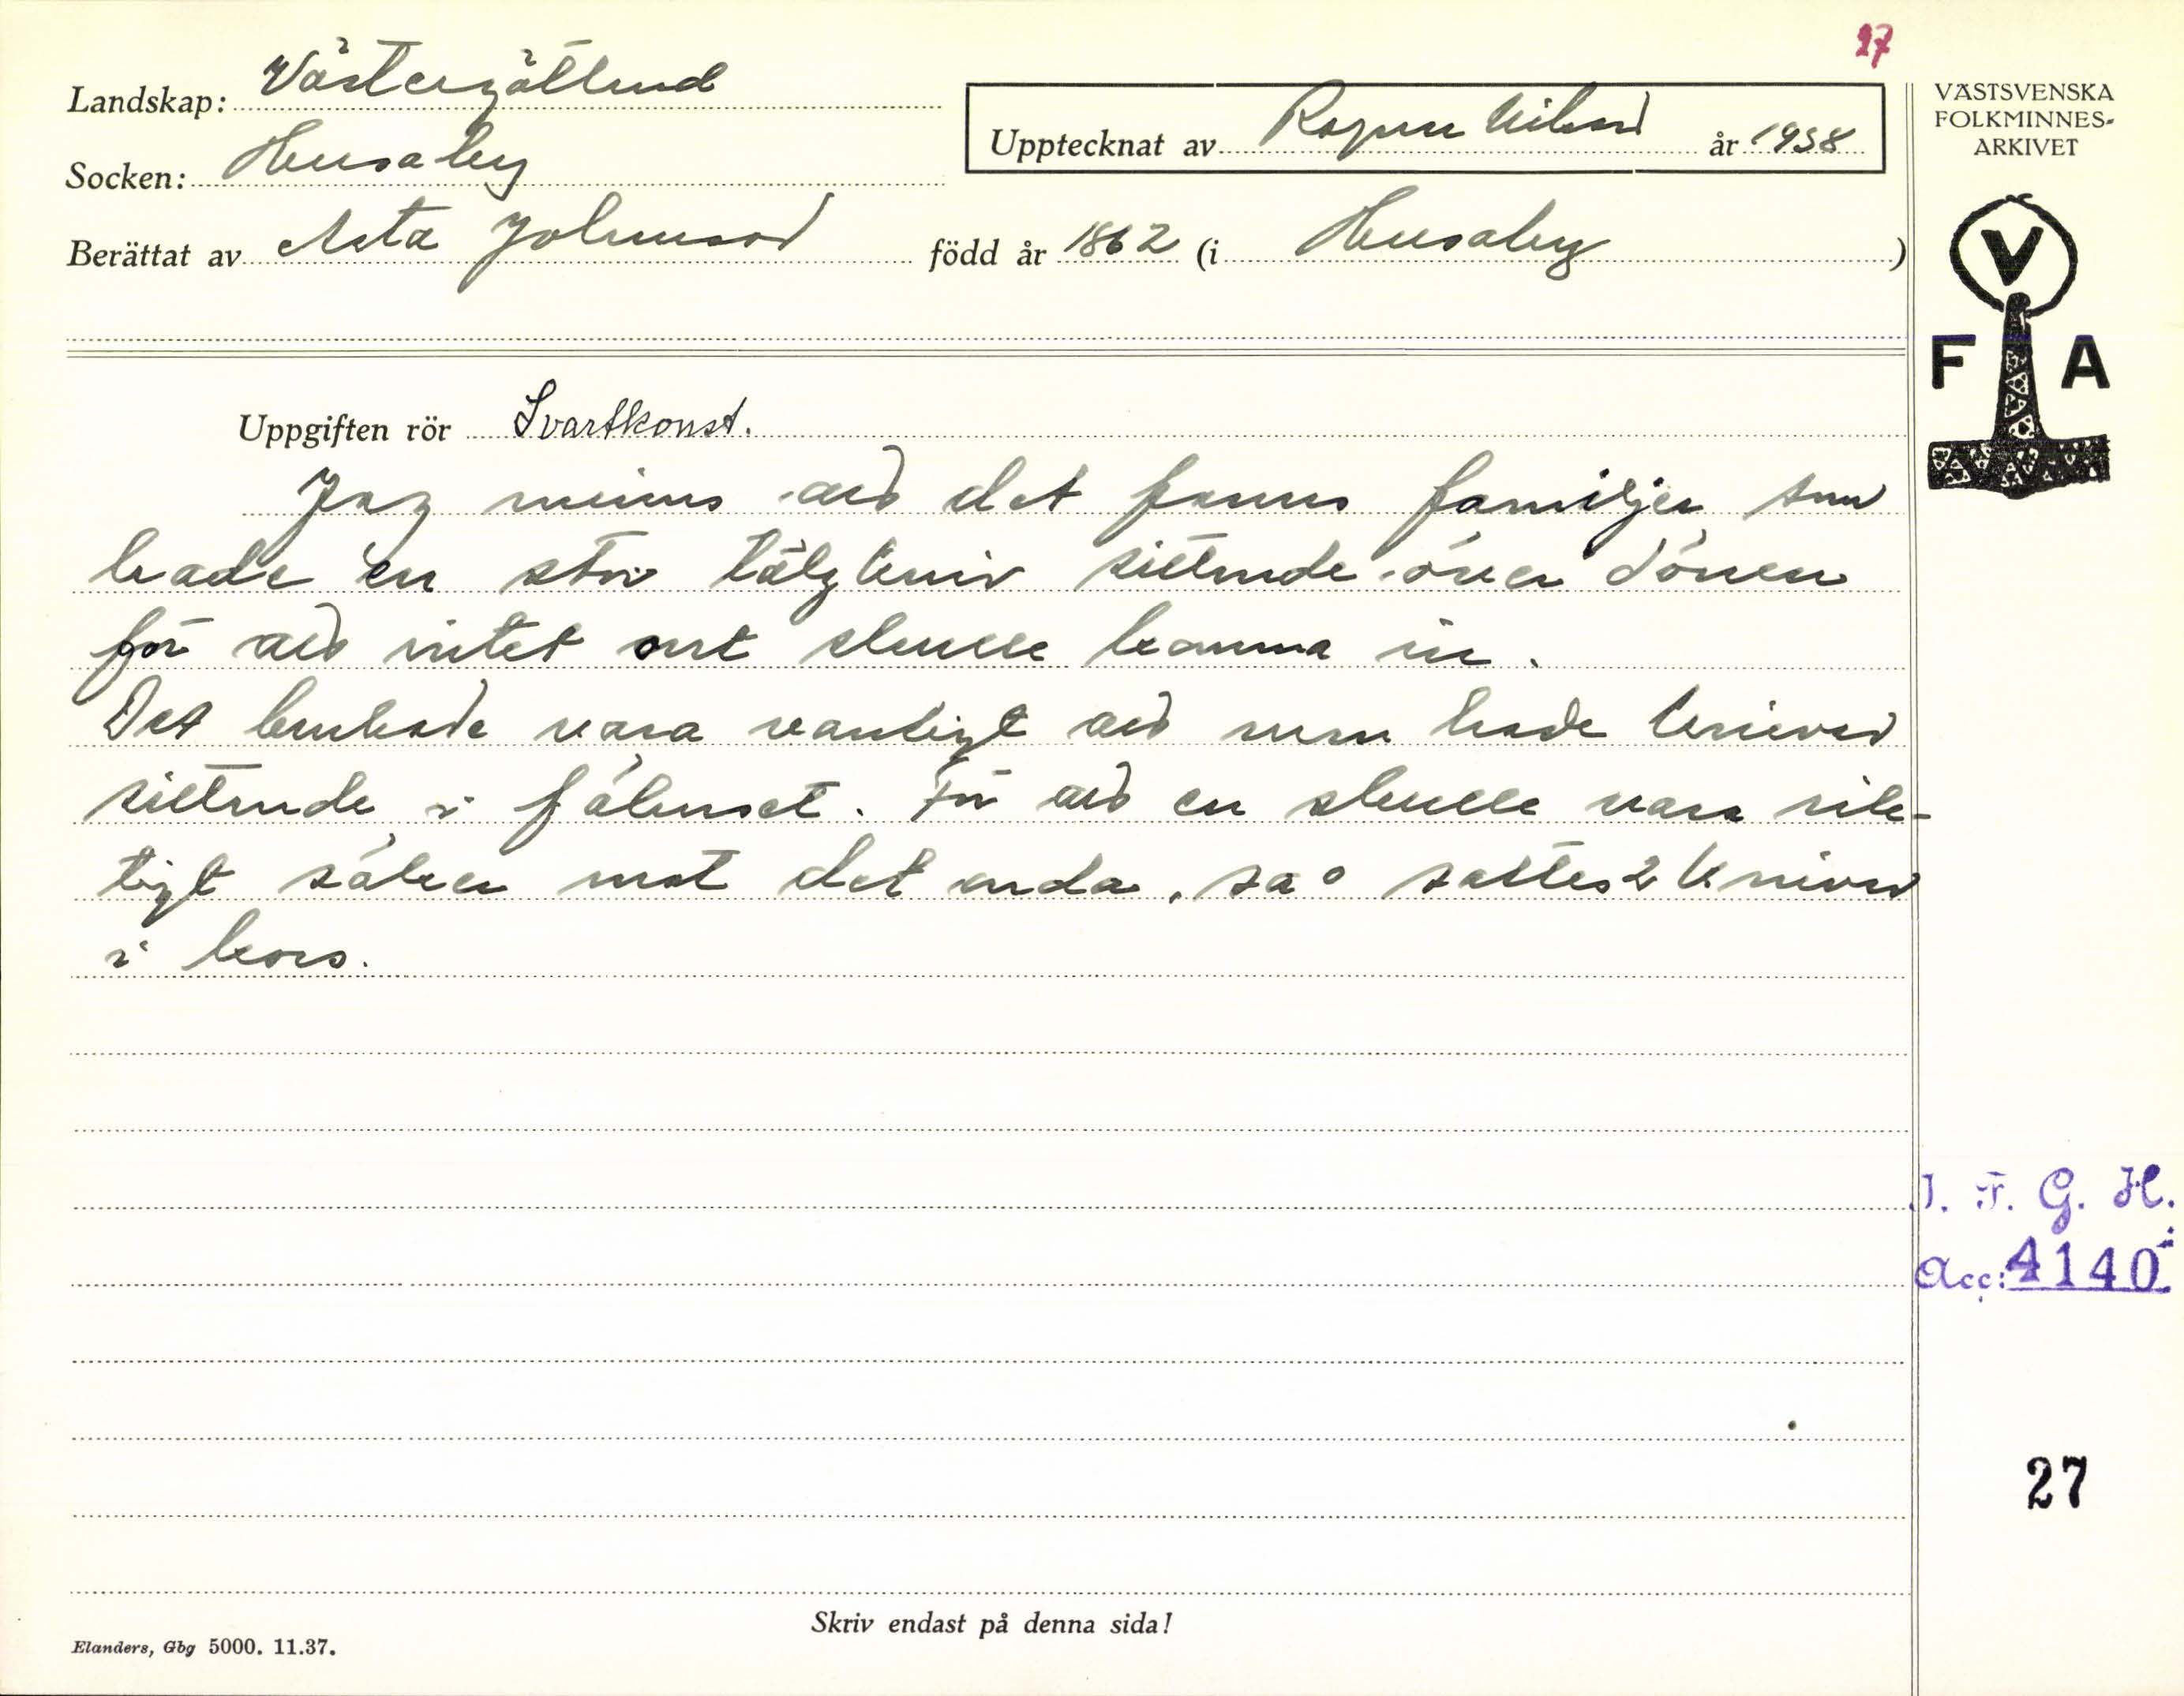 27
Landskap: Västergötland
Socken: Husaby
Berättat av Asta Johansson född år 1862 (i Husaby)
Upptecknat av Ragnar Nilsson år 1938
VÄSTSVENSKA
FOLKMINNES-
ARKIVET
V
F A
Uppgiften rör Svartkonst.
Jag minns att det fanns familjer som
hade en stor tälgkniv sittande över dörren
för att intet ont skulle komma in.
Det brukade vara vanligt att man hade knivar
sittande i fähuset. För att en skulle vara rik-
tigt säker mot det onda, så sattes 2 knivar
i kors.
I. F. G. H.
Acc: 4140
27
Skriv endast på denna sida!
Elanders, Gbg 5000. 11.37.